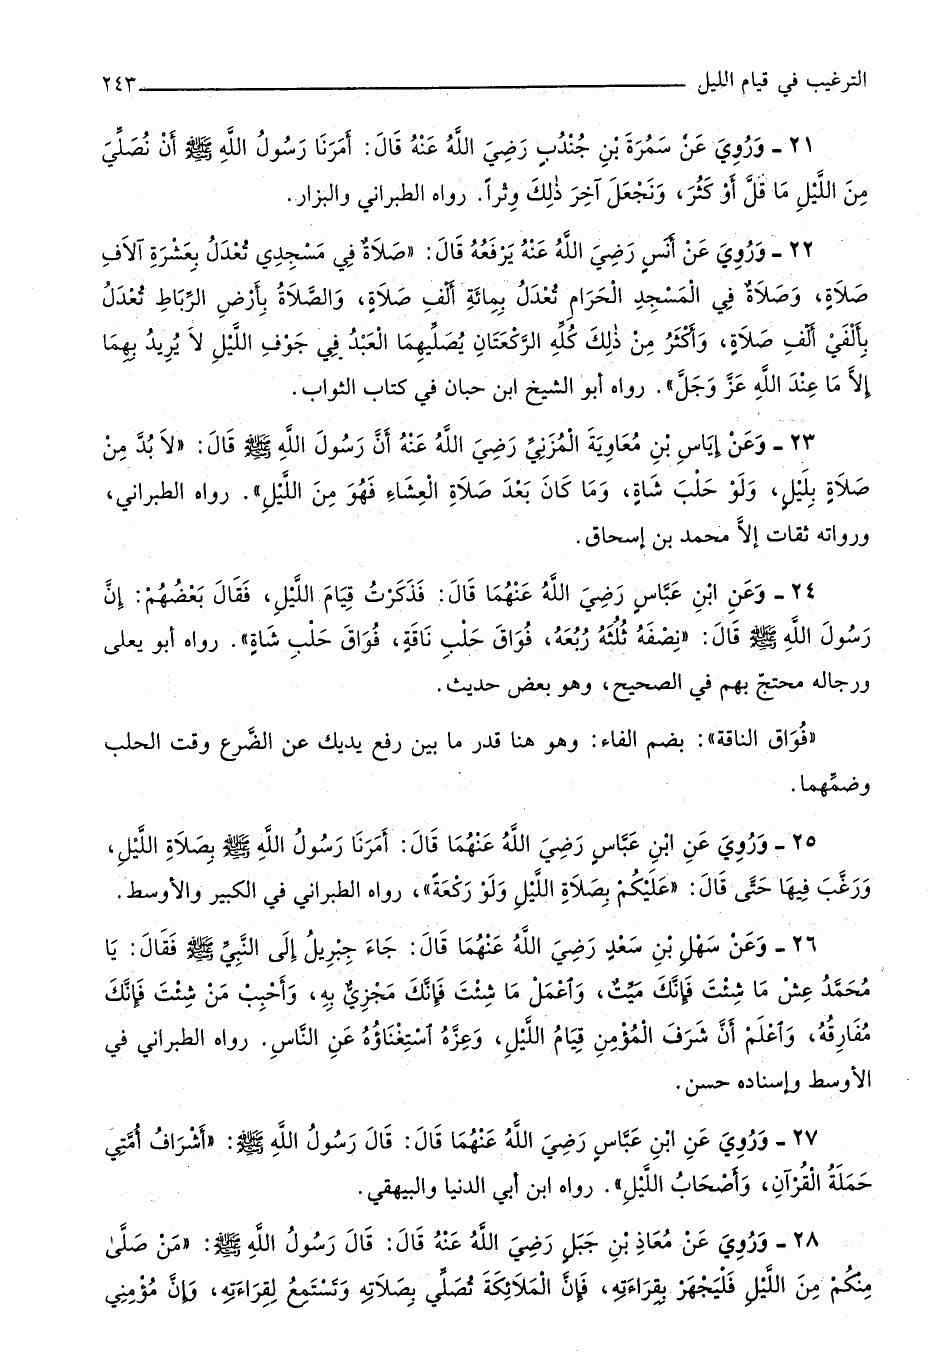 الترغيب في قيام الليل ــــــــــــ ٢٤٣
٢١ ـ وَرُوِيَ عَنْ سَمُرَةَ بْنِ جُنْدُبٍ رَضِيَ اللَّهُ عَنْهُ قَالَ: أَمَرَنَا رَسُولُ اللَّهِ ﷺ أَنْ نُصَلِّيَ
مِنَ اللَّيْلِ مَا قَلَّ أَوْ كَثُرَ، وَنَجْعَلَ آخِرَ ذٰلِكَ وِتْراً. رواه الطبراني والبزار.
٢٢ ـ وَرُوِيَ عَنْ أَنَسٍ رَضِيَ اللَّهُ عَنْهُ يَرْفَعُهُ قَالَ: «صَلَاةٌ فِي مَسْجِدِي تُعْدَلُ بِعَشْرَةِ آلَافِ
صَلَاةٍ، وَصَلَاةٌ فِي الْمَسْجِدِ الْحَرَامِ تُعْدَلُ بِمِائَةِ أَلْفِ صَلَاةٍ، وَالصَّلَاةُ بِأَرْضِ الرِّبَاطِ تُعْدَلُ
بِأَلْفَيْ أَلْفِ صَلَاةٍ، وَأَكْثَرُ مِنْ ذٰلِكَ كُلِّهِ الرَّكْعَتَانِ يُصَلِّيهِمَا الْعَبْدُ فِي جَوْفِ اللَّيْلِ لاَ يُرِيدُ بِهِمَا
إِلاَّ مَا عِنْدَ اللَّهِ عَزَّ وَجَلَّ». رواه أبو الشيخ ابن حبان في كتاب الثواب.
٢٣ ـ وَعَنْ إِيَاسِ بْنِ مُعَاوِيَةَ الْمُزَنِيِّ رَضِيَ اللَّهُ عَنْهُ أَنَّ رَسُولَ اللَّهِ ﷺ قَالَ: «لاَ بُدَّ مِنْ
صَلَاةٍ بِلَيْلٍ، وَلَوْ حَلْبَ شَاةٍ، وَمَا كَانَ بَعْدَ صَلَاةِ الْعِشَاءِ فَهُوَ مِنَ اللَّيْلِ». رواه الطبراني،
ورواته ثقات إلاَّ محمد بن إسحاق.
٢٤ ـ وَعَنِ ابْنِ عَبَّاسٍ رَضِيَ اللَّهُ عَنْهُمَا قَالَ: فَذَكَرْتُ قِيَامَ اللَّيْلِ، فَقَالَ بَعْضُهُمْ: إِنَّ
رَسُولَ اللَّهِ ﷺ قَالَ: «نِصْفَهُ ثُلُثَهُ رُبُعَهُ، فُوَاقَ حَلْبِ نَاقَةٍ، فُوَاقَ حَلْبِ شَاةٍ». رواه أبو يعلى
ورجاله محتجّ بهم في الصحيح، وهو بعض حديث.
«فُوَاق الناقة»: بضم الفاء: وهو هنا قدر ما بين رفع يديك عن الضَّرع وقت الحلب
وضمِّهما.
٢٥ ـ وَرُوِيَ عَنِ ابْنِ عَبَّاسٍ رَضِيَ اللَّهُ عَنْهُمَا قَالَ: أَمَرَنَا رَسُولُ اللَّهِ ﷺ بِصَلَاةِ اللَّيْلِ،
وَرَغَّبَ فِيهَا حَتَّى قَالَ: «عَلَيْكُمْ بِصَلَاةِ اللَّيْلِ وَلَوْ رَكْعَةً»، رواه الطبراني في الكبير والأوسط.
٢٦ ـ وَعَنْ سَهْلِ بْنِ سَعْدٍ رَضِيَ اللَّهُ عَنْهُمَا قَالَ: جَاءَ جِبْرِيلُ إِلَى النَّبِيِّ ﷺ فَقَالَ: يَا
مُحَمَّدُ عِشْ مَا شِئْتَ فَإِنَّكَ مَيِّتٌ، وَٱعْمَلْ مَا شِئْتَ فَإِنَّكَ مَجْزِيٌّ بِهِ، وَأَحْبِبْ مَنْ شِئْتَ فَإِنَّكَ
مُفَارِقُهُ، وَٱعْلَمْ أَنَّ شَرَفَ الْمُؤْمِنِ قِيَامُ اللَّيْلِ، وَعِزَّهُ ٱسْتِغْنَاؤُهُ عَنِ النَّاسِ. رواه الطبراني في
الأوسط وإسناده حسن.
٢٧ ـ وَرُوِيَ عَنِ ابْنِ عَبَّاسٍ رَضِيَ اللَّهُ عَنْهُمَا قَالَ: قَالَ رَسُولُ اللَّهِ ﷺ: «أَشْرَافُ أُمَّتِي
حَمَلَةُ الْقُرْآنِ، وَأَصْحَابُ اللَّيْلِ». رواه ابن أبي الدنيا والبيهقي.
٢٨ ـ وَرُوِيَ عَنْ مُعَاذِ بْنِ جَبَلٍ رَضِيَ اللَّهُ عَنْهُ قَالَ: قَالَ رَسُولُ اللَّهِ ﷺ: «مَنْ صَلَّىٰ
مِنْكُمْ مِنَ اللَّيْلِ فَلْيَجْهَرْ بِقِرَاءَتِهِ، فَإِنَّ الْمَلَائِكَةَ تُصَلِّي بِصَلَاتِهِ وَتَسْتَمِعُ لِقِرَاءَتِهِ، وَإِنَّ مُؤْمِنِي